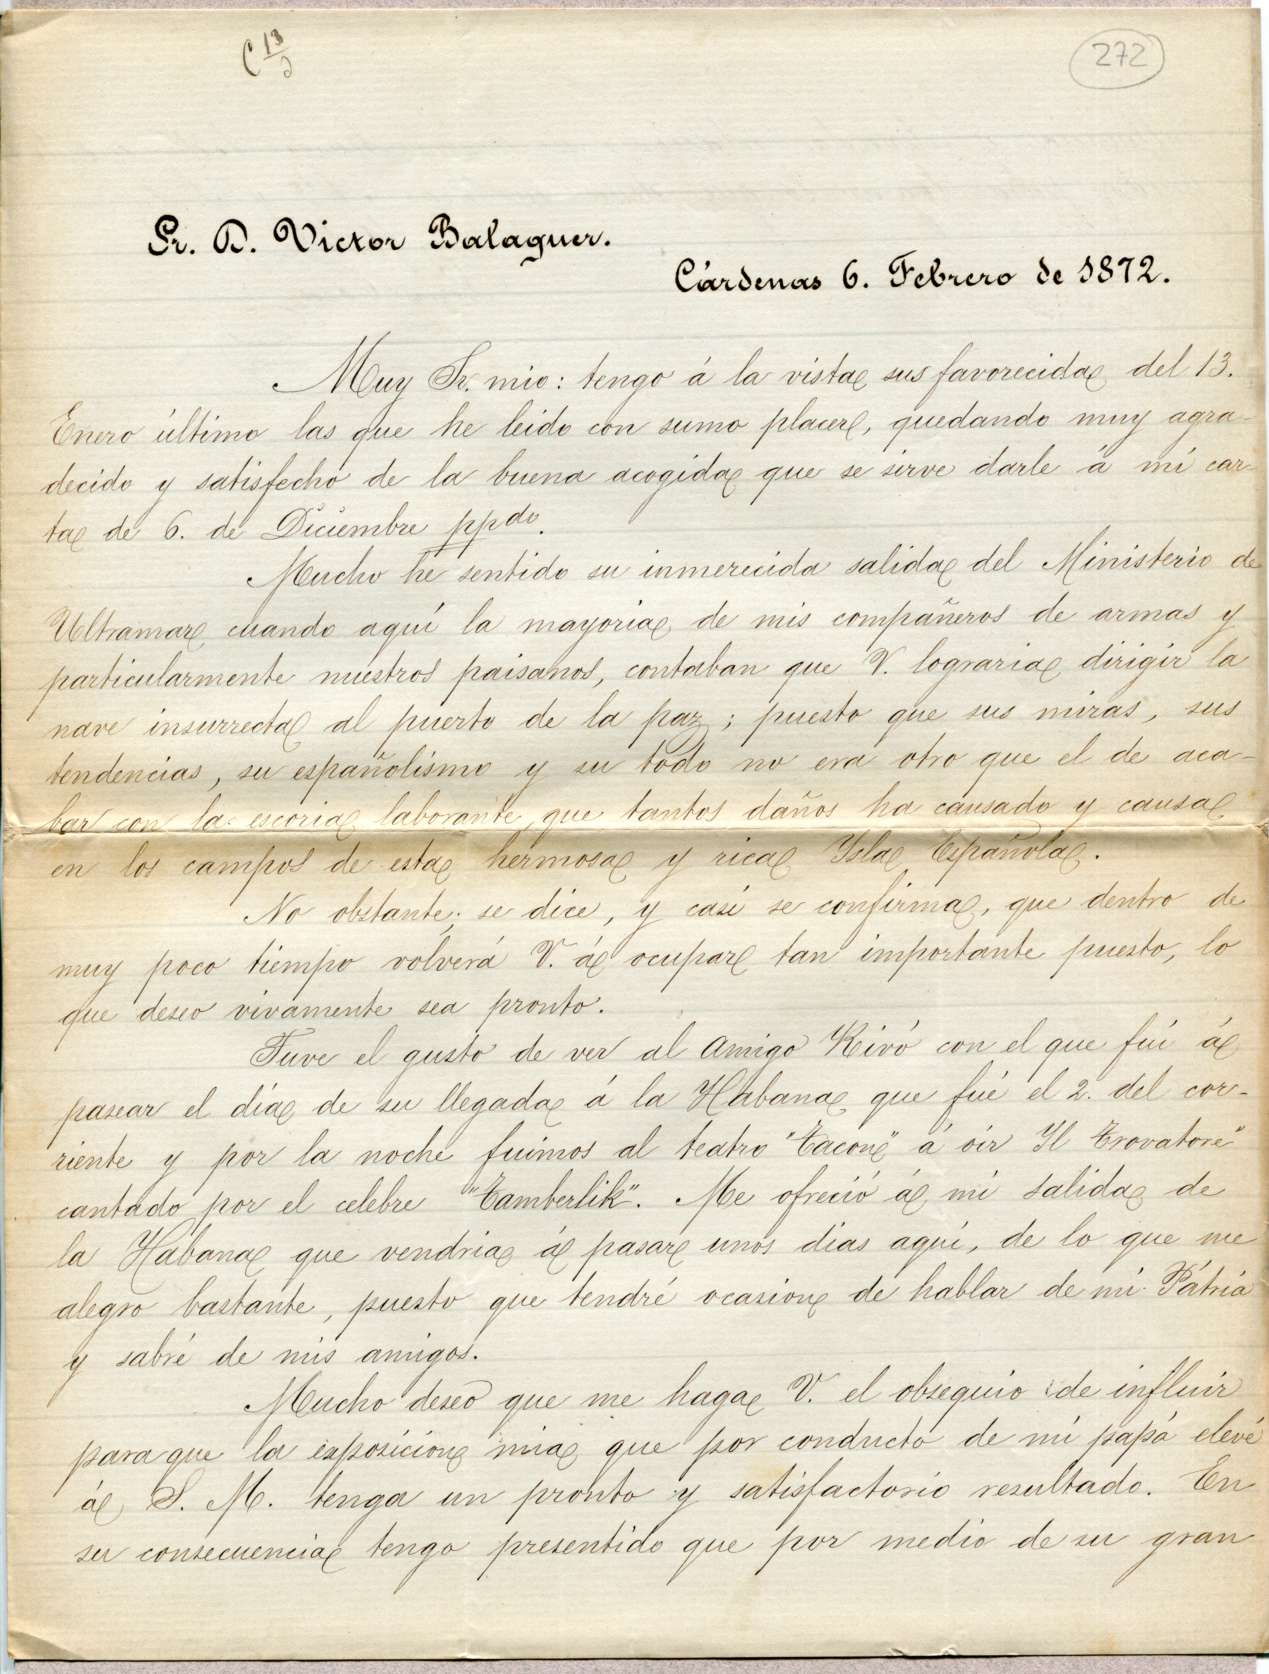 C 13/2
272
Sr. D. Victor Balaguer.
Cárdenas 6. Febrero de 1872.
Muy Sr. mio: tengo á la vista sus favorecida del 13.
Enero último las que he leido con sumo placer, quedando muy agra-
decido y satisfecho de la buena acogida que se sirve darle á mi car-
ta de 6. de Diciembre ppdo.
Mucho he sentido su inmerecida salida del Ministerio de
Ultramar cuando aquí la mayoria de mis compañeros de armas y
particularmente nuestros paisanos, contaban que V. lograria dirigir la
nave insurrecta al puerto de la paz; puesto que sus miras, sus
tendencias, su españolismo y su todo no era otro que el de aca-
bar con la escoria laborante, que tantos daños ha causado y causa
en los campos de esta hermosa y rica Ysla Española.
No obstante; se dice, y casi se confirma, que dentro de
muy poco tiempo volverá V. á ocupar tan importante puesto, lo
que deseo vivamente sea pronto.
Tuve el gusto de ver al amigo Rivó con el que fuí á
pasear el día de su llegada á la Habana que fué el 2. del cor-
riente y por la noche fuimos al teatro "Tacon" á oír Yl Trovatore"
cantado por el celebre "Tamberlik". Me ofreció á mi salida de
la Habana que vendria á pasar unos dias aquí, de lo que me
alegro bastante, puesto que tendré ocasion de hablar de mi Pátria
y sabré de mis amigos.
Mucho deseo que me haga V. el obsequio de influir
para que la exposicion mia que por conducto de mi papá elevé
á S. M. tenga un pronto y satisfactorio resultado. En
su consecuencia tengo presentido que por medio de su gran